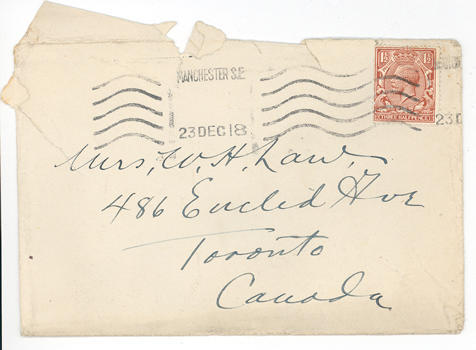 MANCHESTER S.E
23 DEC 18
1½ 1½
THREE HALFPENCE
23 D
Mrs, W. H. Law.
486 Euclid Ave
Toronto
Canada